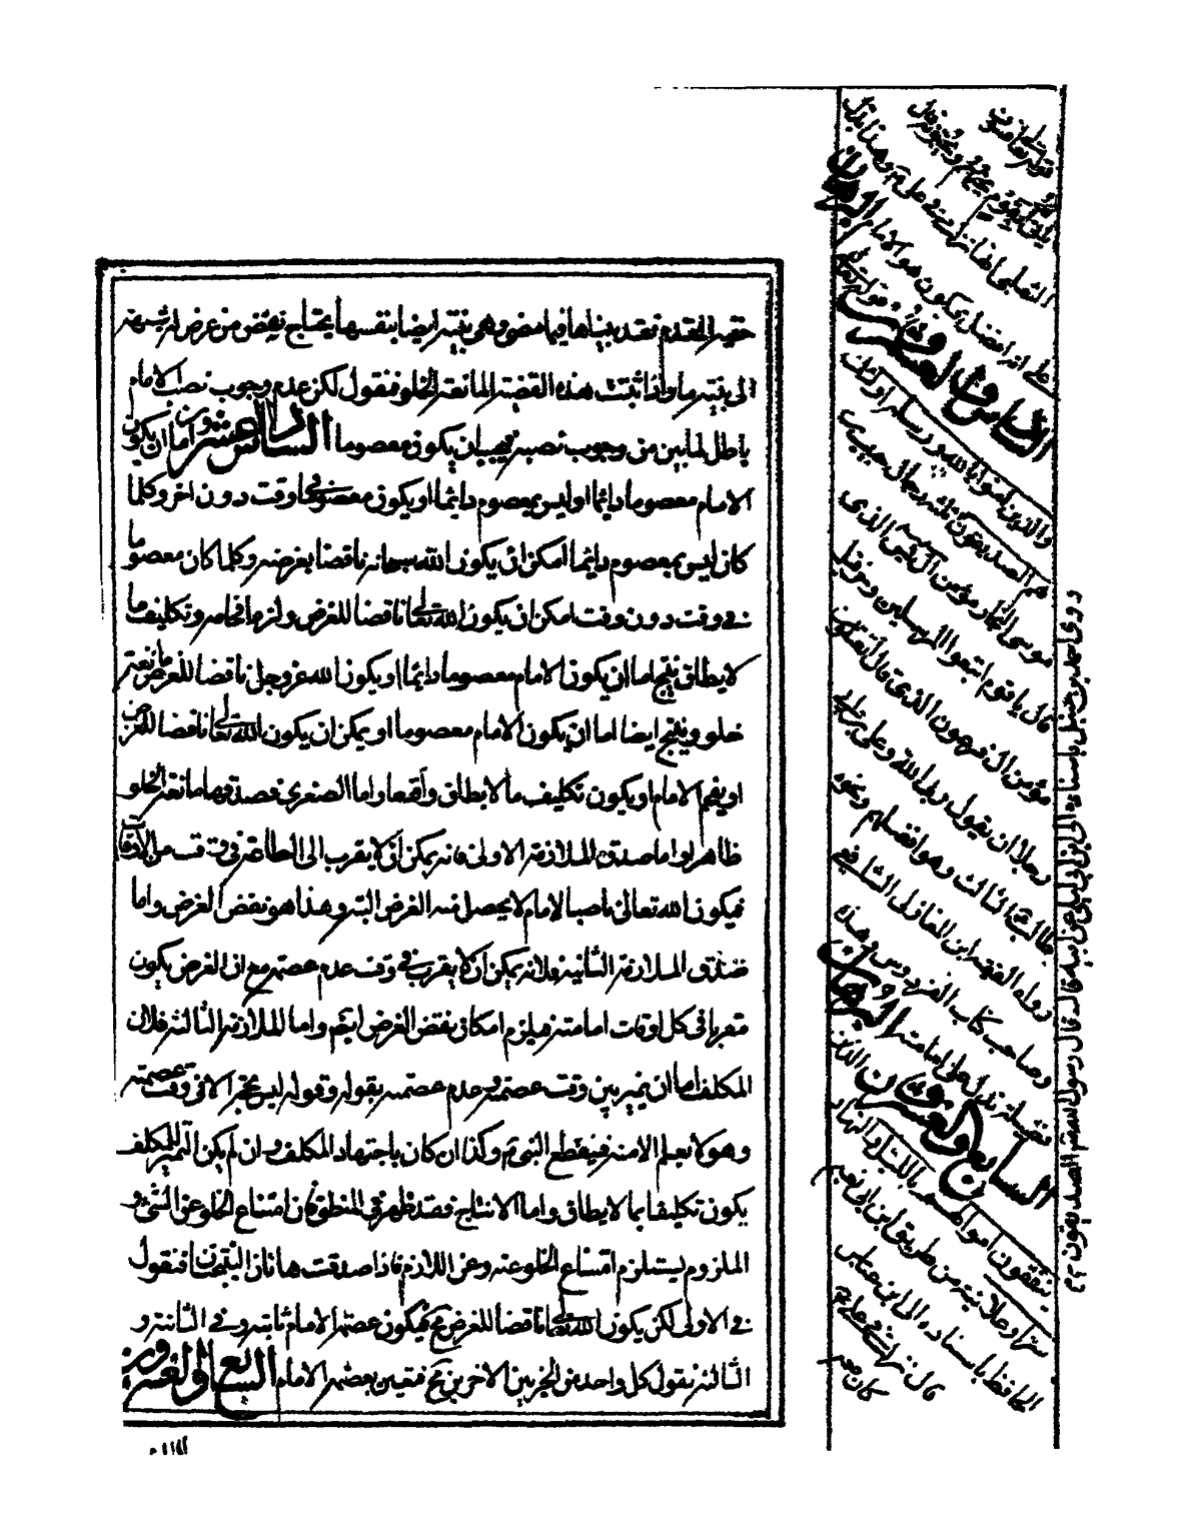 حقية المقدم فقد بيناها فيما مضى وهى بينة ايضا بنفسها يحتاج بعض من عرض له شبهة
الى بينة ما واذا ثبتت هذه القضية المانعة الخلو فنقول لكن عدم وجوب نصب الامام
باطل لما بين من وجوب نصبه فيجب ان يكون معصوما السادس والعشرون اما ان يكون
الامام معصوما دائما او ليس بمعصوم دائما او يكون معصوما فى وقت دون اخر وكلما
كان ليس بمعصوم دائما امكن ان يكون الله سبحانه ناقضا بغرضه وكلما كان معصوما
فى وقت دون وقت امكن ان يكون الله تعالى ناقضا للغرض ولزم افحامه وتكليف ما
لا يطاق ينتج اما ان يكون الامام معصوما دائما او يكون الله عز وجل ناقضا للغرض مانعة
خلو وينتج ايضا اما ان يكون الامام معصوما او يمكن ان يكون الله تعالى ناقضا للغرض
او يفحم الامام او يكون تكليف ما لا يطاق واقعا واما الصغرى فصدقها مانعة الخلو
ظاهر واما صدق الملازمة الاولى فانه يمكن ان لا يقرب الى الطاعة فى وقت من الاوقات
فيكون الله تعالى ناصبا لامام لا يحصل منه الغرض البتة وهذا هو نقض الغرض واما
صدق الملازمة الثانية فلانه يمكن ان لا يقرب فى وقت عدم عصمته مع ان الغرض يكون
مقربا فى كل اوقات امامته فيلزم امكان نقض الغرض ايضا واما الملازمة الثالثة فلان
المكلف اما ان يميز بين وقت عصمته وعدم عصمته بقوله وقوله ليس بحجة الا فى وقت عصمته
وهو لا يعلم الا منه فينقطع النبى م وكذا ان كان باجتهاد المكلف وان لم يكن التميز للمكلف
يكون تكليفا بما لا يطاق واما الانتاج فقد ظهر فى المنطق فان امتناع الخلو عن الشىء و
الملزوم يستلزم امتناع الخلو عنه وعن اللازم فاذا صدقت هاتان النتيجتان فنقول
فى الاولى لكن يكون الله تعالى ناقضا للغرض مح فيكون عصمة الامام ثابتة وفى الثانية و
الثالثة نقول كل واحد من الجزئين الاخرين مح فتعين عصمة الامام السابع والعشرون
قوله تعالى
يحبهم ويحبونه قال
الثعلبى انما نزلت فى على م وهذا يدل
على انه افضل فيكون هو الامام البرهان
السادس والعشرون قوله تعالى
والذين امنوا بالله ورسله اولئك
هم الصديقون
موسى النجار مؤمن ال يس الذى
قال يا قوم اتبعوا المرسلين وحزقيل
مؤمن ال فرعون الذى قال اتقتلون
رجلا ان يقول ربى الله وعلى بن ابى
طالب الثالث وهو افضلهم ونحوه
رواه الفقيه ابن المغازلى الشافعى
وصاحب كتاب الفردوس وهذه
فضيلة تدل على امامته البرهان
السابع والعشرون الذين
ينفقون اموالهم بالليل والنهار
سرا وعلانية من طريق ابى نعيم
الحافظ باسناده الى ابن عباس
قال نزلت فى على م
كان معه
روى احمد بن حنبل باسناده الى ابن ابى ليلى عن ابيه قال قال رسول الله صم الصديقون